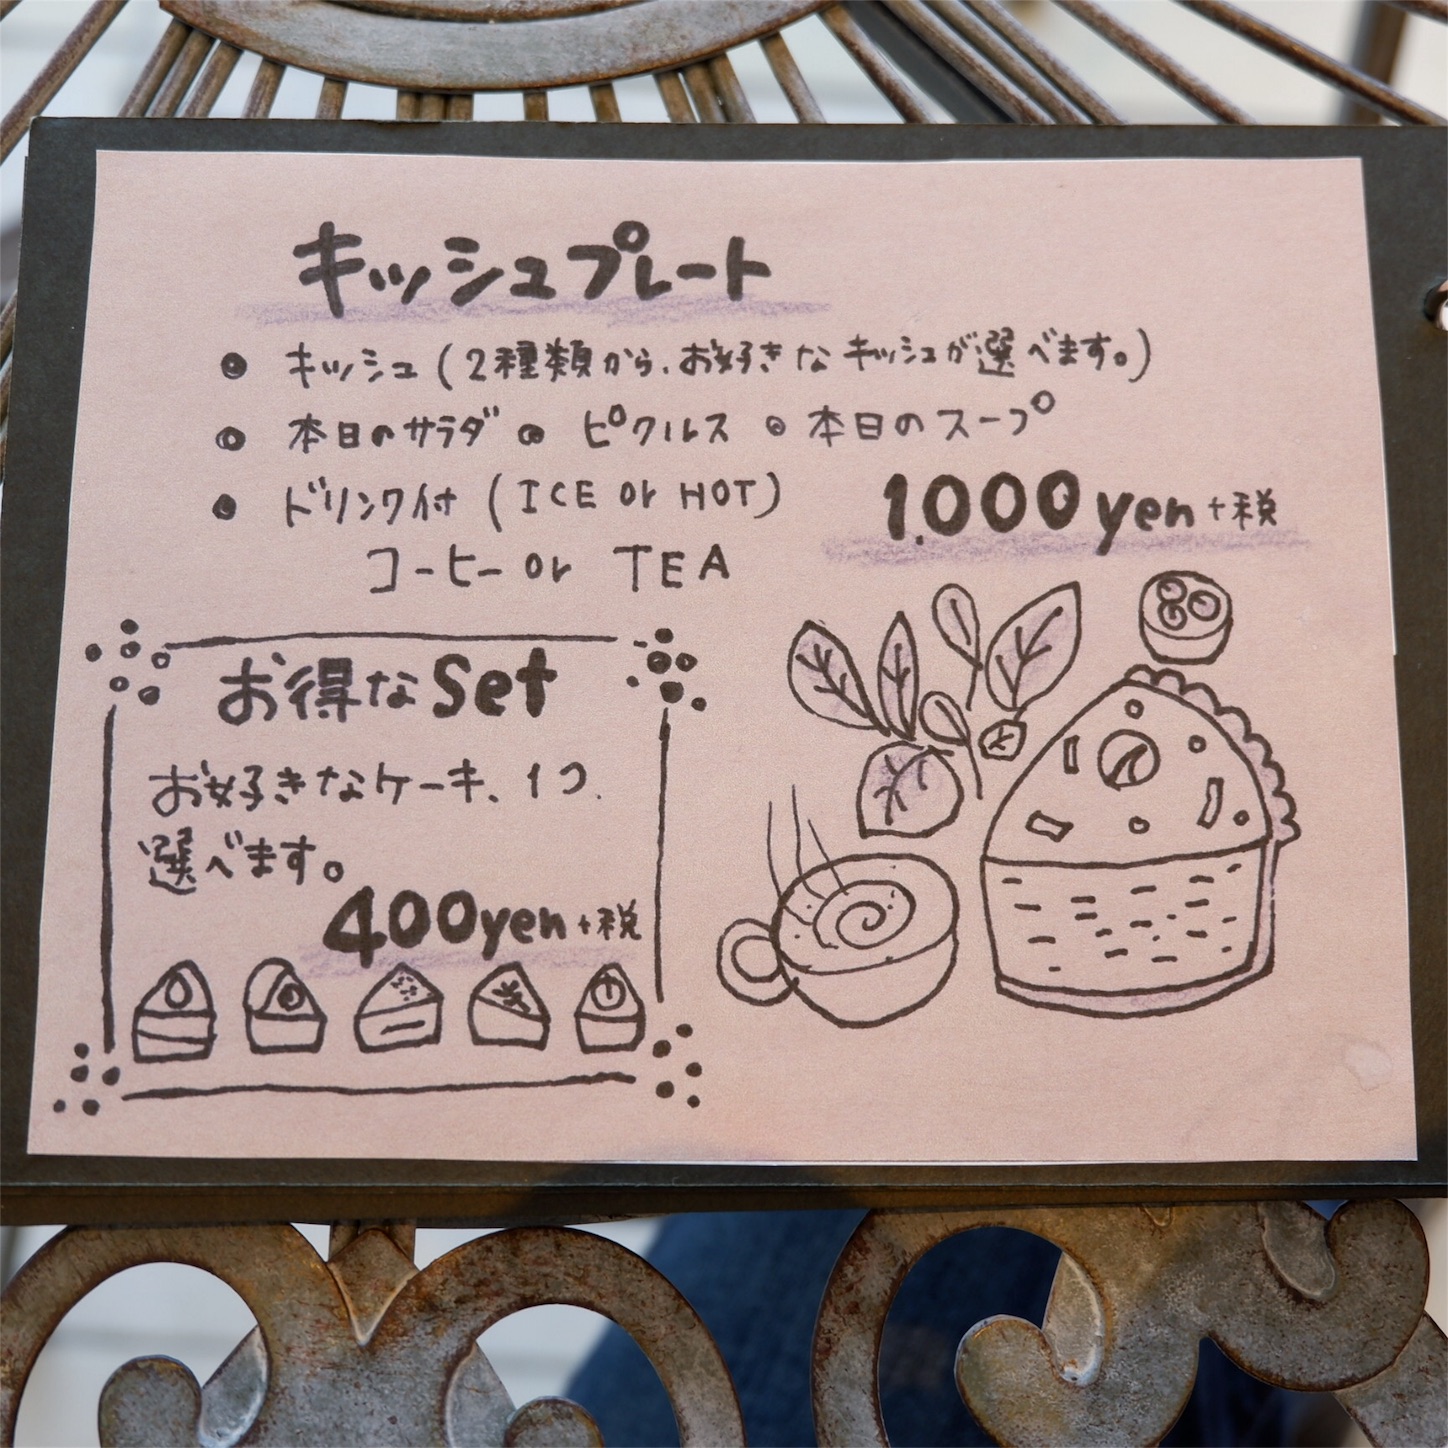 キッシュプレート
• キッシュ(2種類から、お好きなキッシュが選べます。)
• 本日のサラダ • ピクルス • 本日のスープ
• ドリンク付 (ICE or HOT)
コーヒー or TEA
1.000yen+税
お得なSet
お好きなケーキ、1つ
選べます。
400yen+税